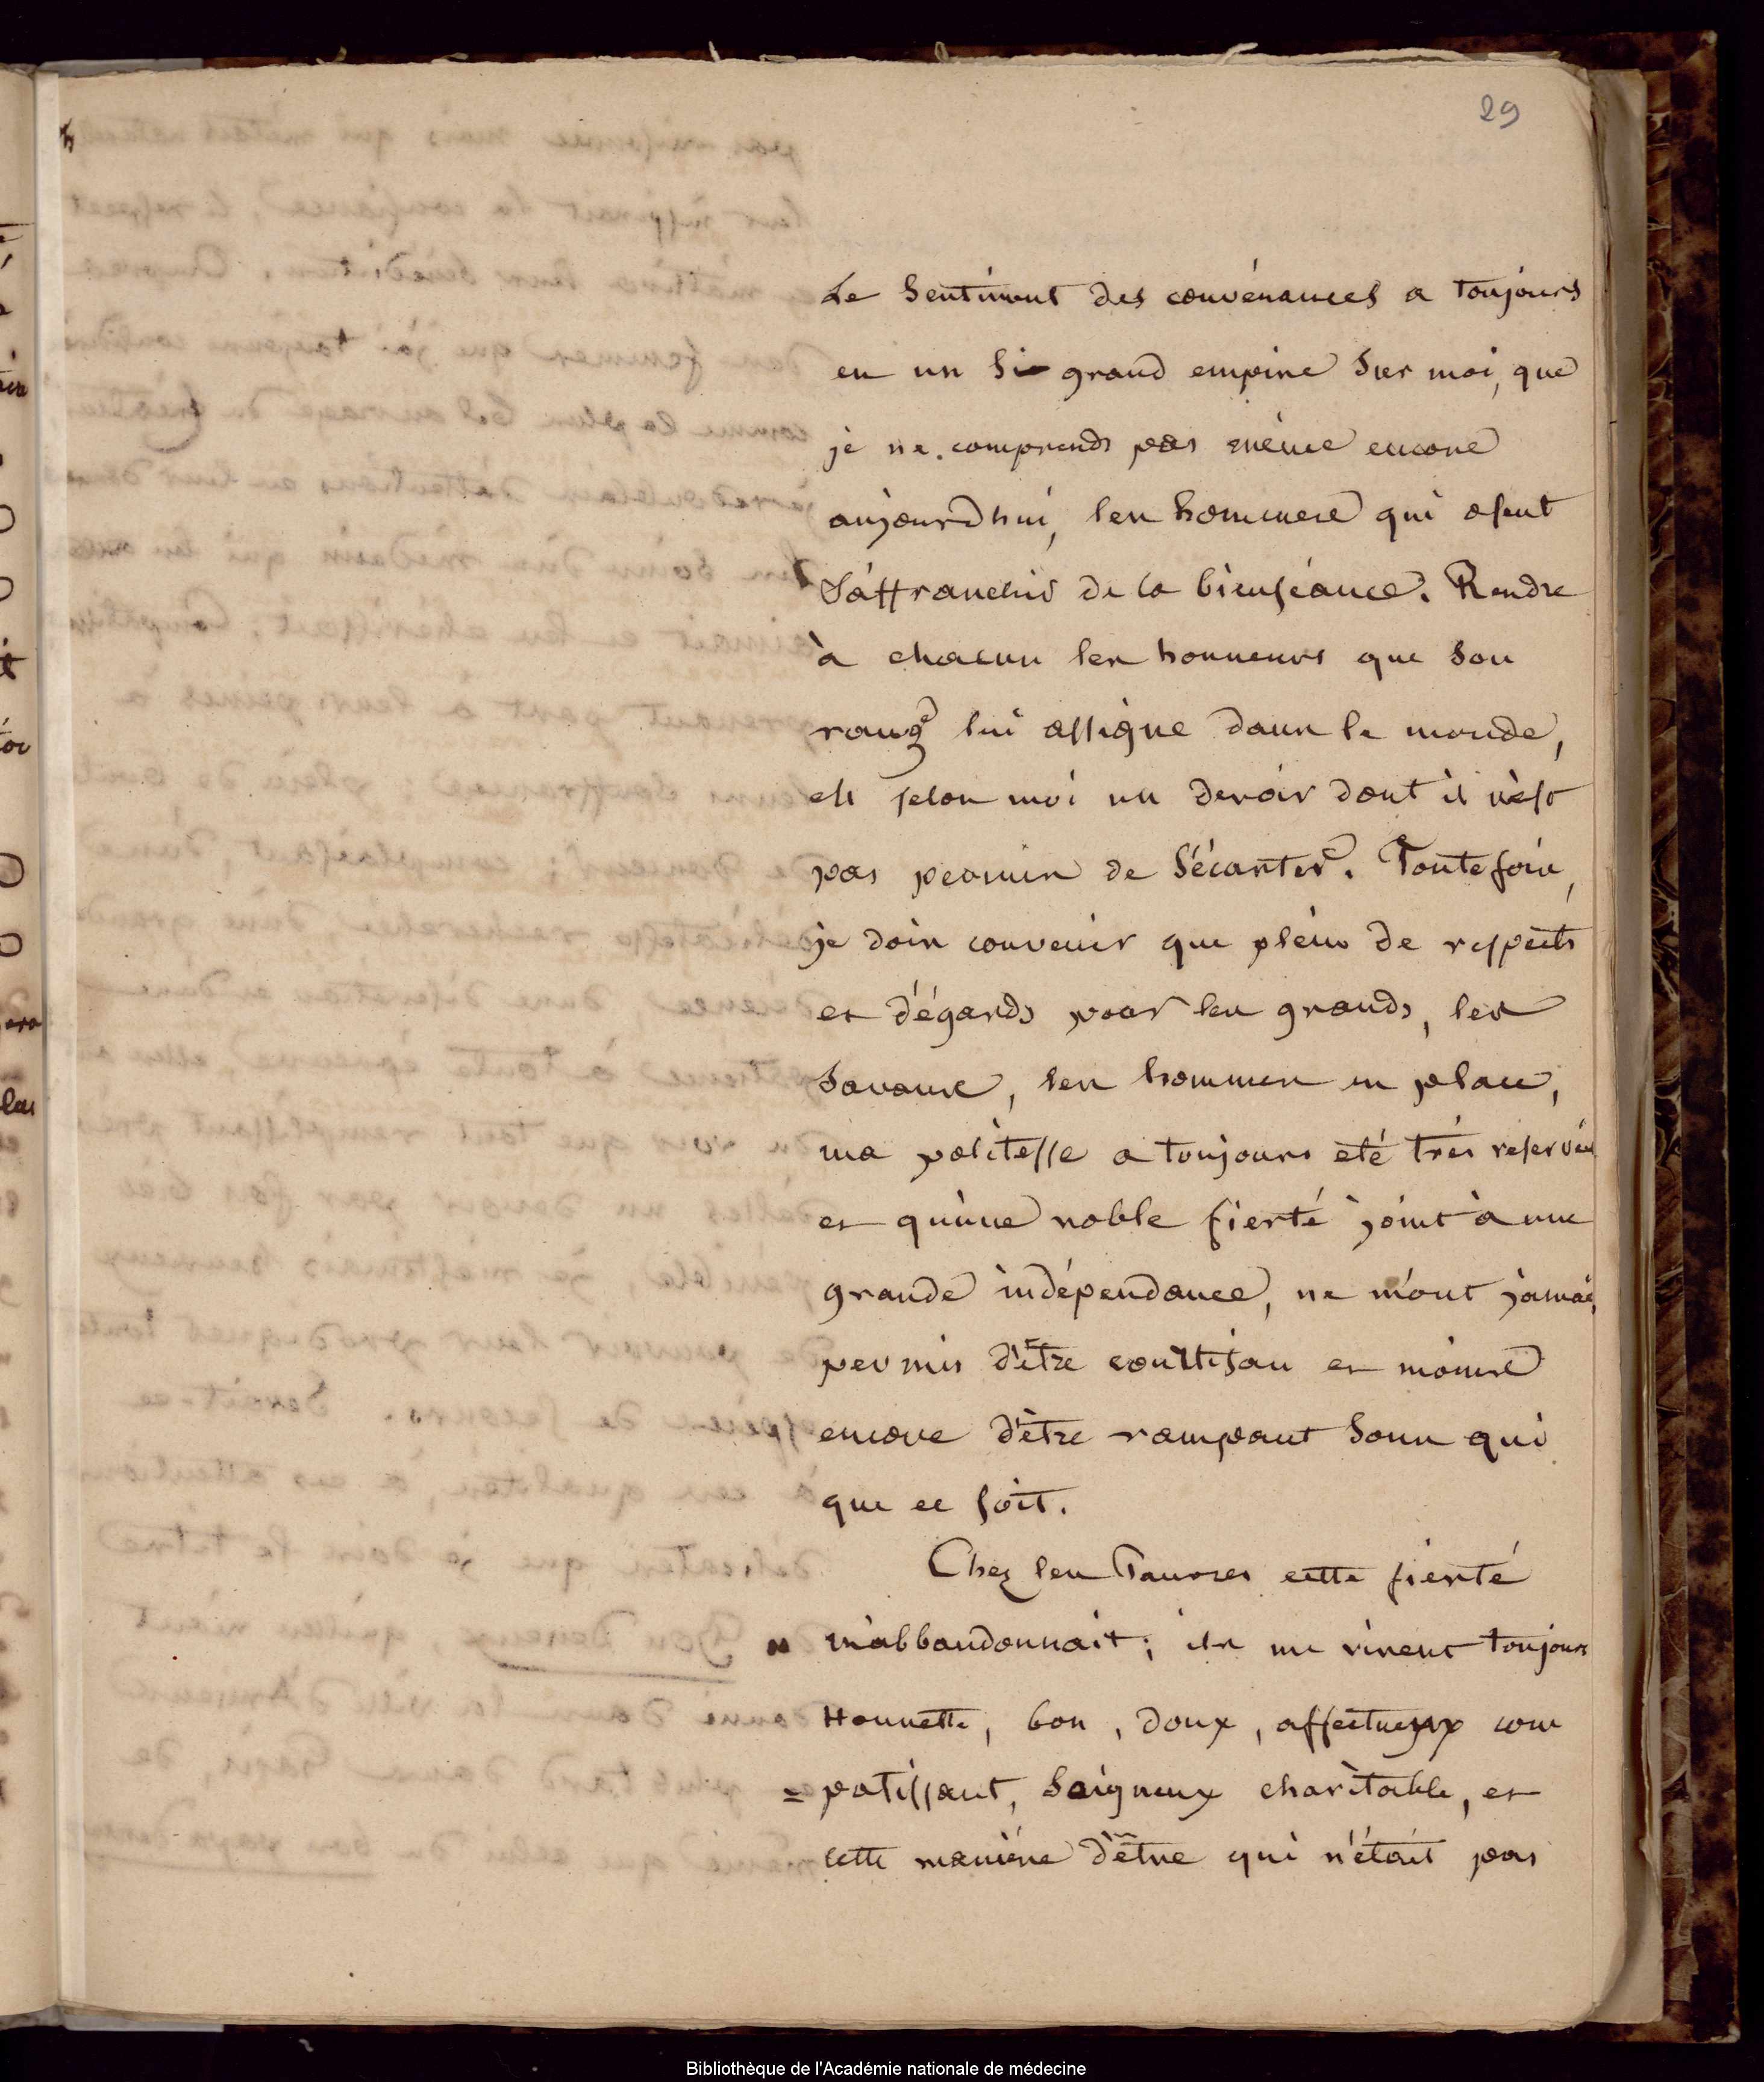 29
Le Sentiment des convénances a toujours
eu un Si grand empire Sur moi, que
je ne comprends pas même encore
aujourd'hui, les hommes qui osent
S'affranchir de la bienséance. Rendre
à chacun les honneurs que Son
rang lui assigne dans le monde,
est selon moi un devoir dont il n'est
pas permis de S'écarter. Toutefois,
je dois convenir que plein de respects
et d'égards pour les grands, les
Savans, les hommes en place,
ma politesse a toujours eté très reservée
et qu'une noble fierté joint à une
grande indépendance, ne m'ont jamais
permis d'être courtisan et moins
encore d'être rampant Sous qui
que ce soit.
Chez les Pauvres cette fierté
m'abbandonnait; ils me virent toujours
Honnette, bon, doux, affectueux com
= patissant, Soigneux charitable, et
cette manière d'être qui n'était pas
Bibliothèque de l'Académie nationale de médecine